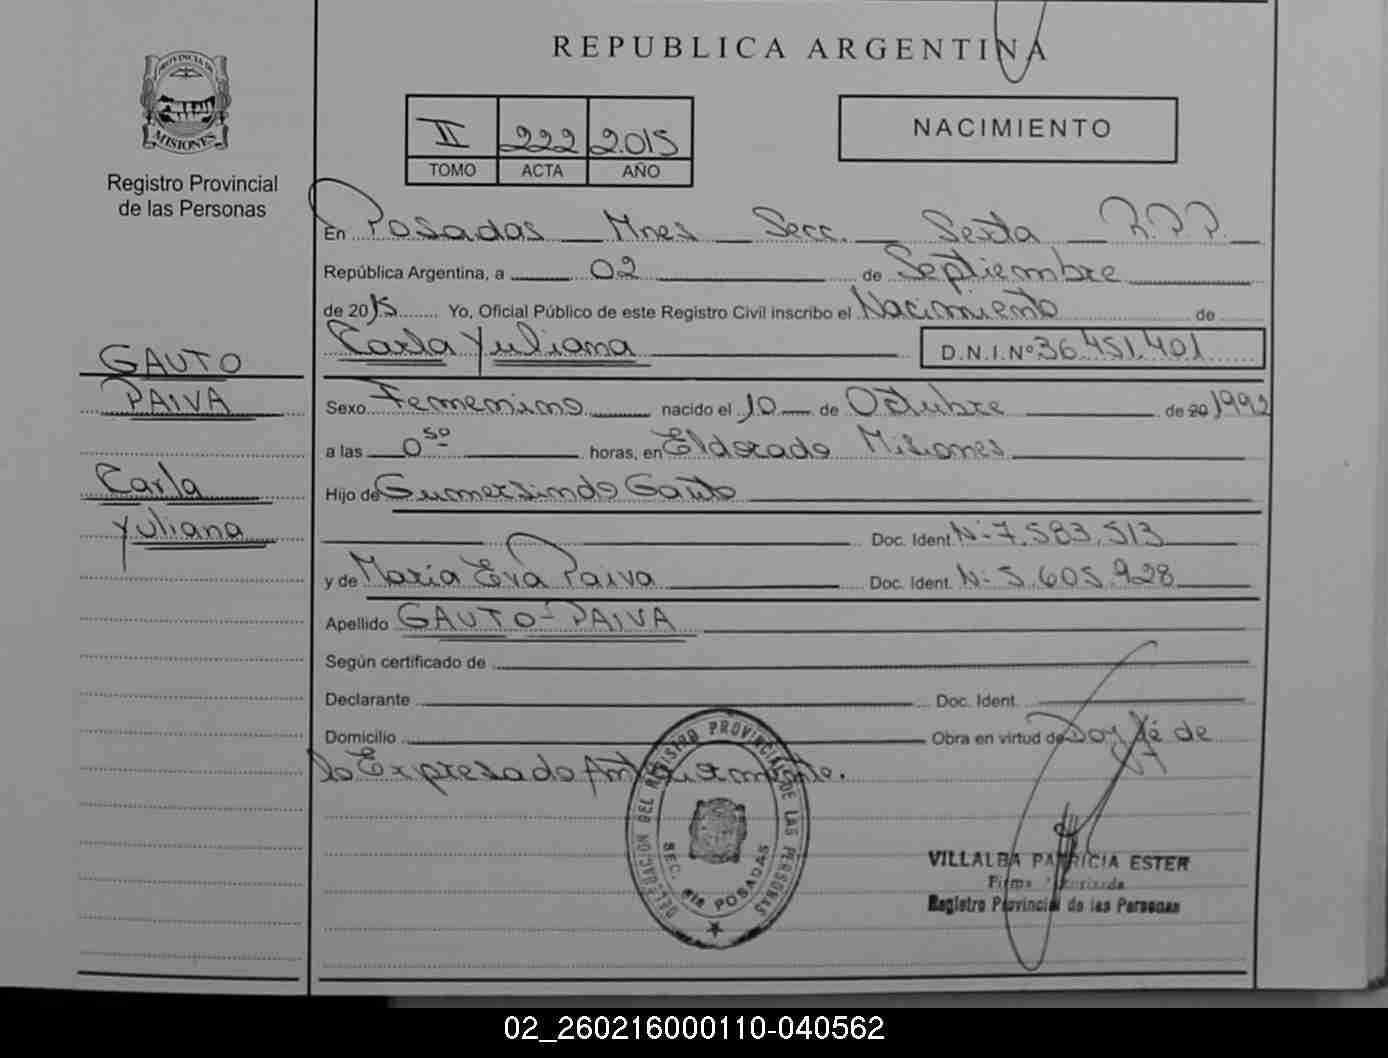 REPUBLICA ARGENTINA
PROVINCIA DE
MISIONES
Registro Provincial
de las Personas
II 222 2.015
TOMO ACTA AÑO
NACIMIENTO
En Posadas Mnes Secc. Sexta R.P.P.
República Argentina, a 02 de Septiembre
de 2015 Yo, Oficial Público de este Registro Civil inscribo el Nacimiento de
Carla Yuliana D.N.I.Nº 36.451.401
GAUTO
PAIVA
Carla
Yuliana
Sexo Femenino nacido el 10 de Octubre de 20 1992
a las 0 50 horas, en Eldorado Misiones
Hijo de Gumersindo Gauto
Doc. Ident. Nº 7.583.513
y de María Eva Paiva Doc. Ident. Nº 5.605.928
Apellido GAUTO-PAIVA
Según certificado de
Declarante Doc. Ident.
Domicilio Obra en virtud de Doy fé de
lo Expresado Anteriormente.
DELEGACION DEL REGISTRO PROVINCIAL DE LAS PERSONAS
SEC. 6ta POSADAS
VILLALBA PATRICIA ESTER
Firma Autorizada
Registro Provincial de las Personas
02_260216000110-040562